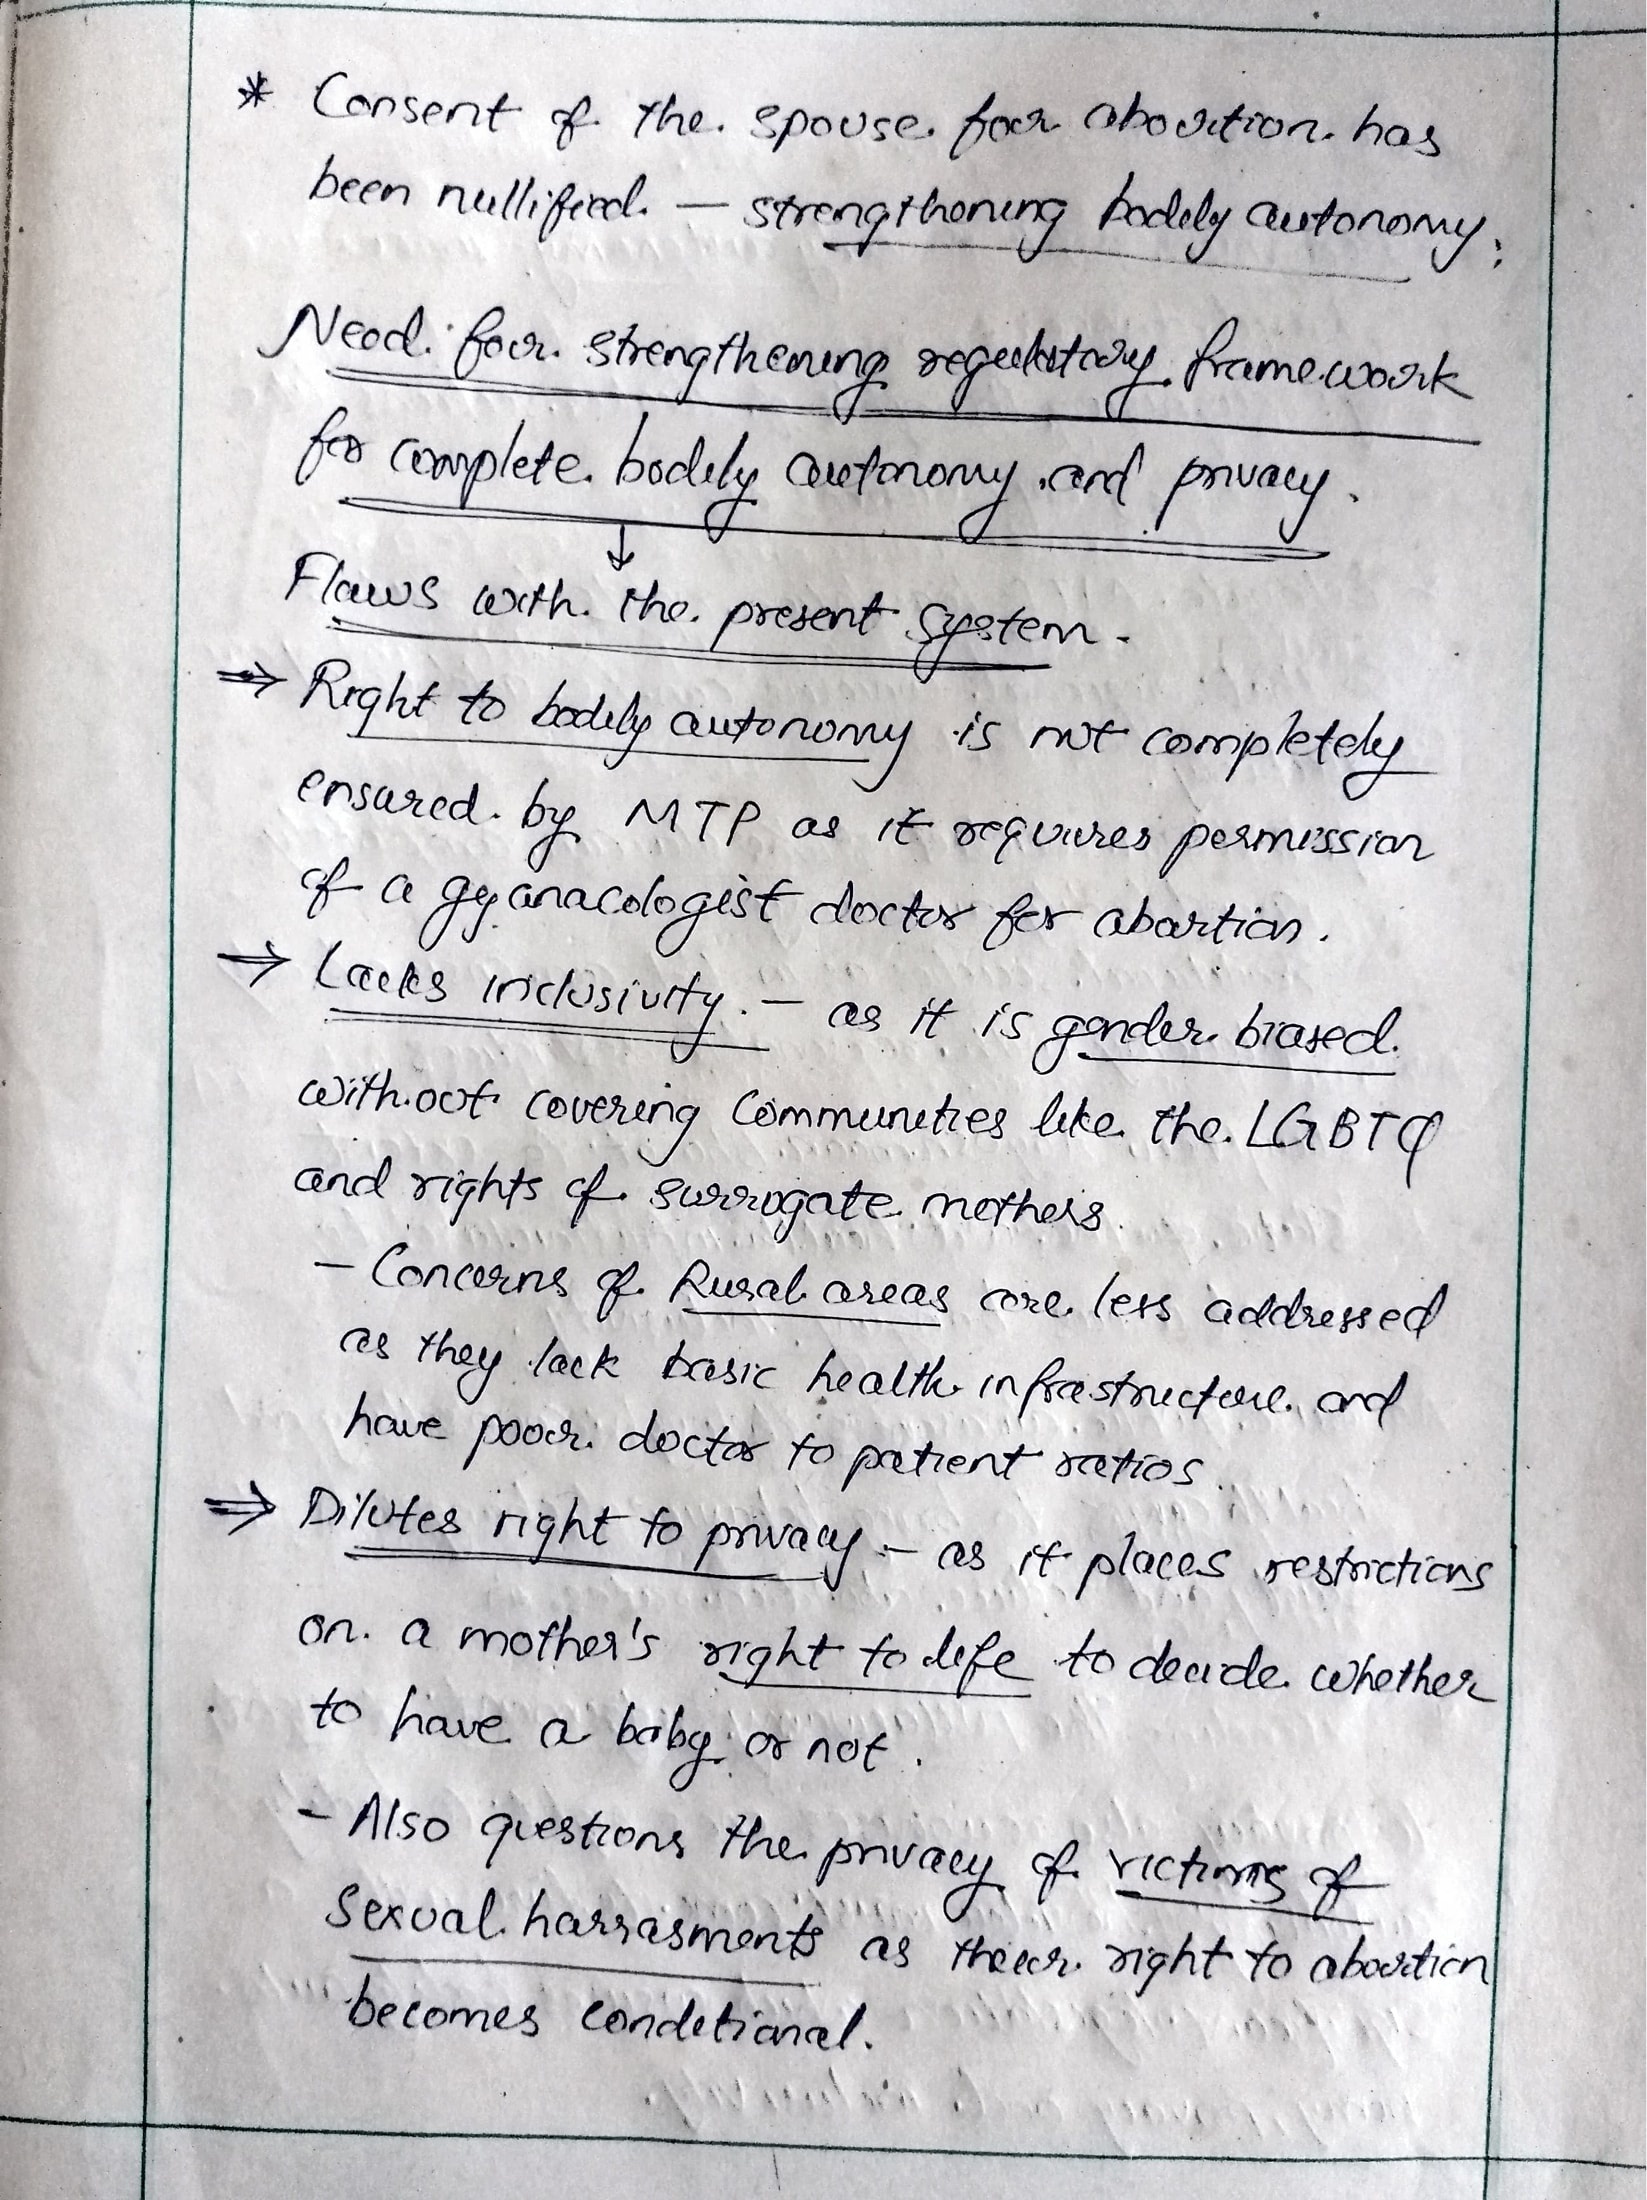 * Consent of the spouse for abortion has
been nullified. — strengthening bodily autonomy.
Need for strengthening regulatory framework
for complete bodily autonomy and privacy.
↓
Flaws with the present system.
⇒ Right to bodily autonomy is not completely
ensured by MTP as it requires permission
of a gyanacologist doctor for abortion.
⇒ Lacks inclusivity. — as it is gender biased
without covering communities like the LGBTQ
and rights of surrogate mothers.
— Concerns of Rural areas are less addressed
as they lack basic health infrastructure and
have poor doctor to patient ratios.
⇒ Dilutes right to privacy — as it places restrictions
on a mother's right to life to decide whether
to have a baby or not.
— Also questions the privacy of victims of
sexual harrasments as their right to abortion
becomes conditional.